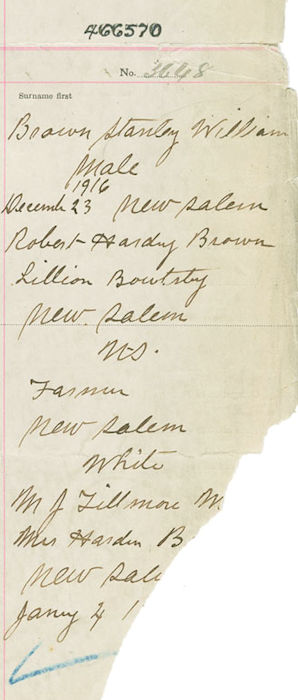 466570
No. 3648
Surname first
Brown Stanley William
Male
1916
December 23 New Salem
Robert Hardy Brown
Lillion Bowtsby
New Salem
N.S.
Farmer
New Salem
White
M J Fillmore M
Mrs Harden B
New Sale
Jany 4 1